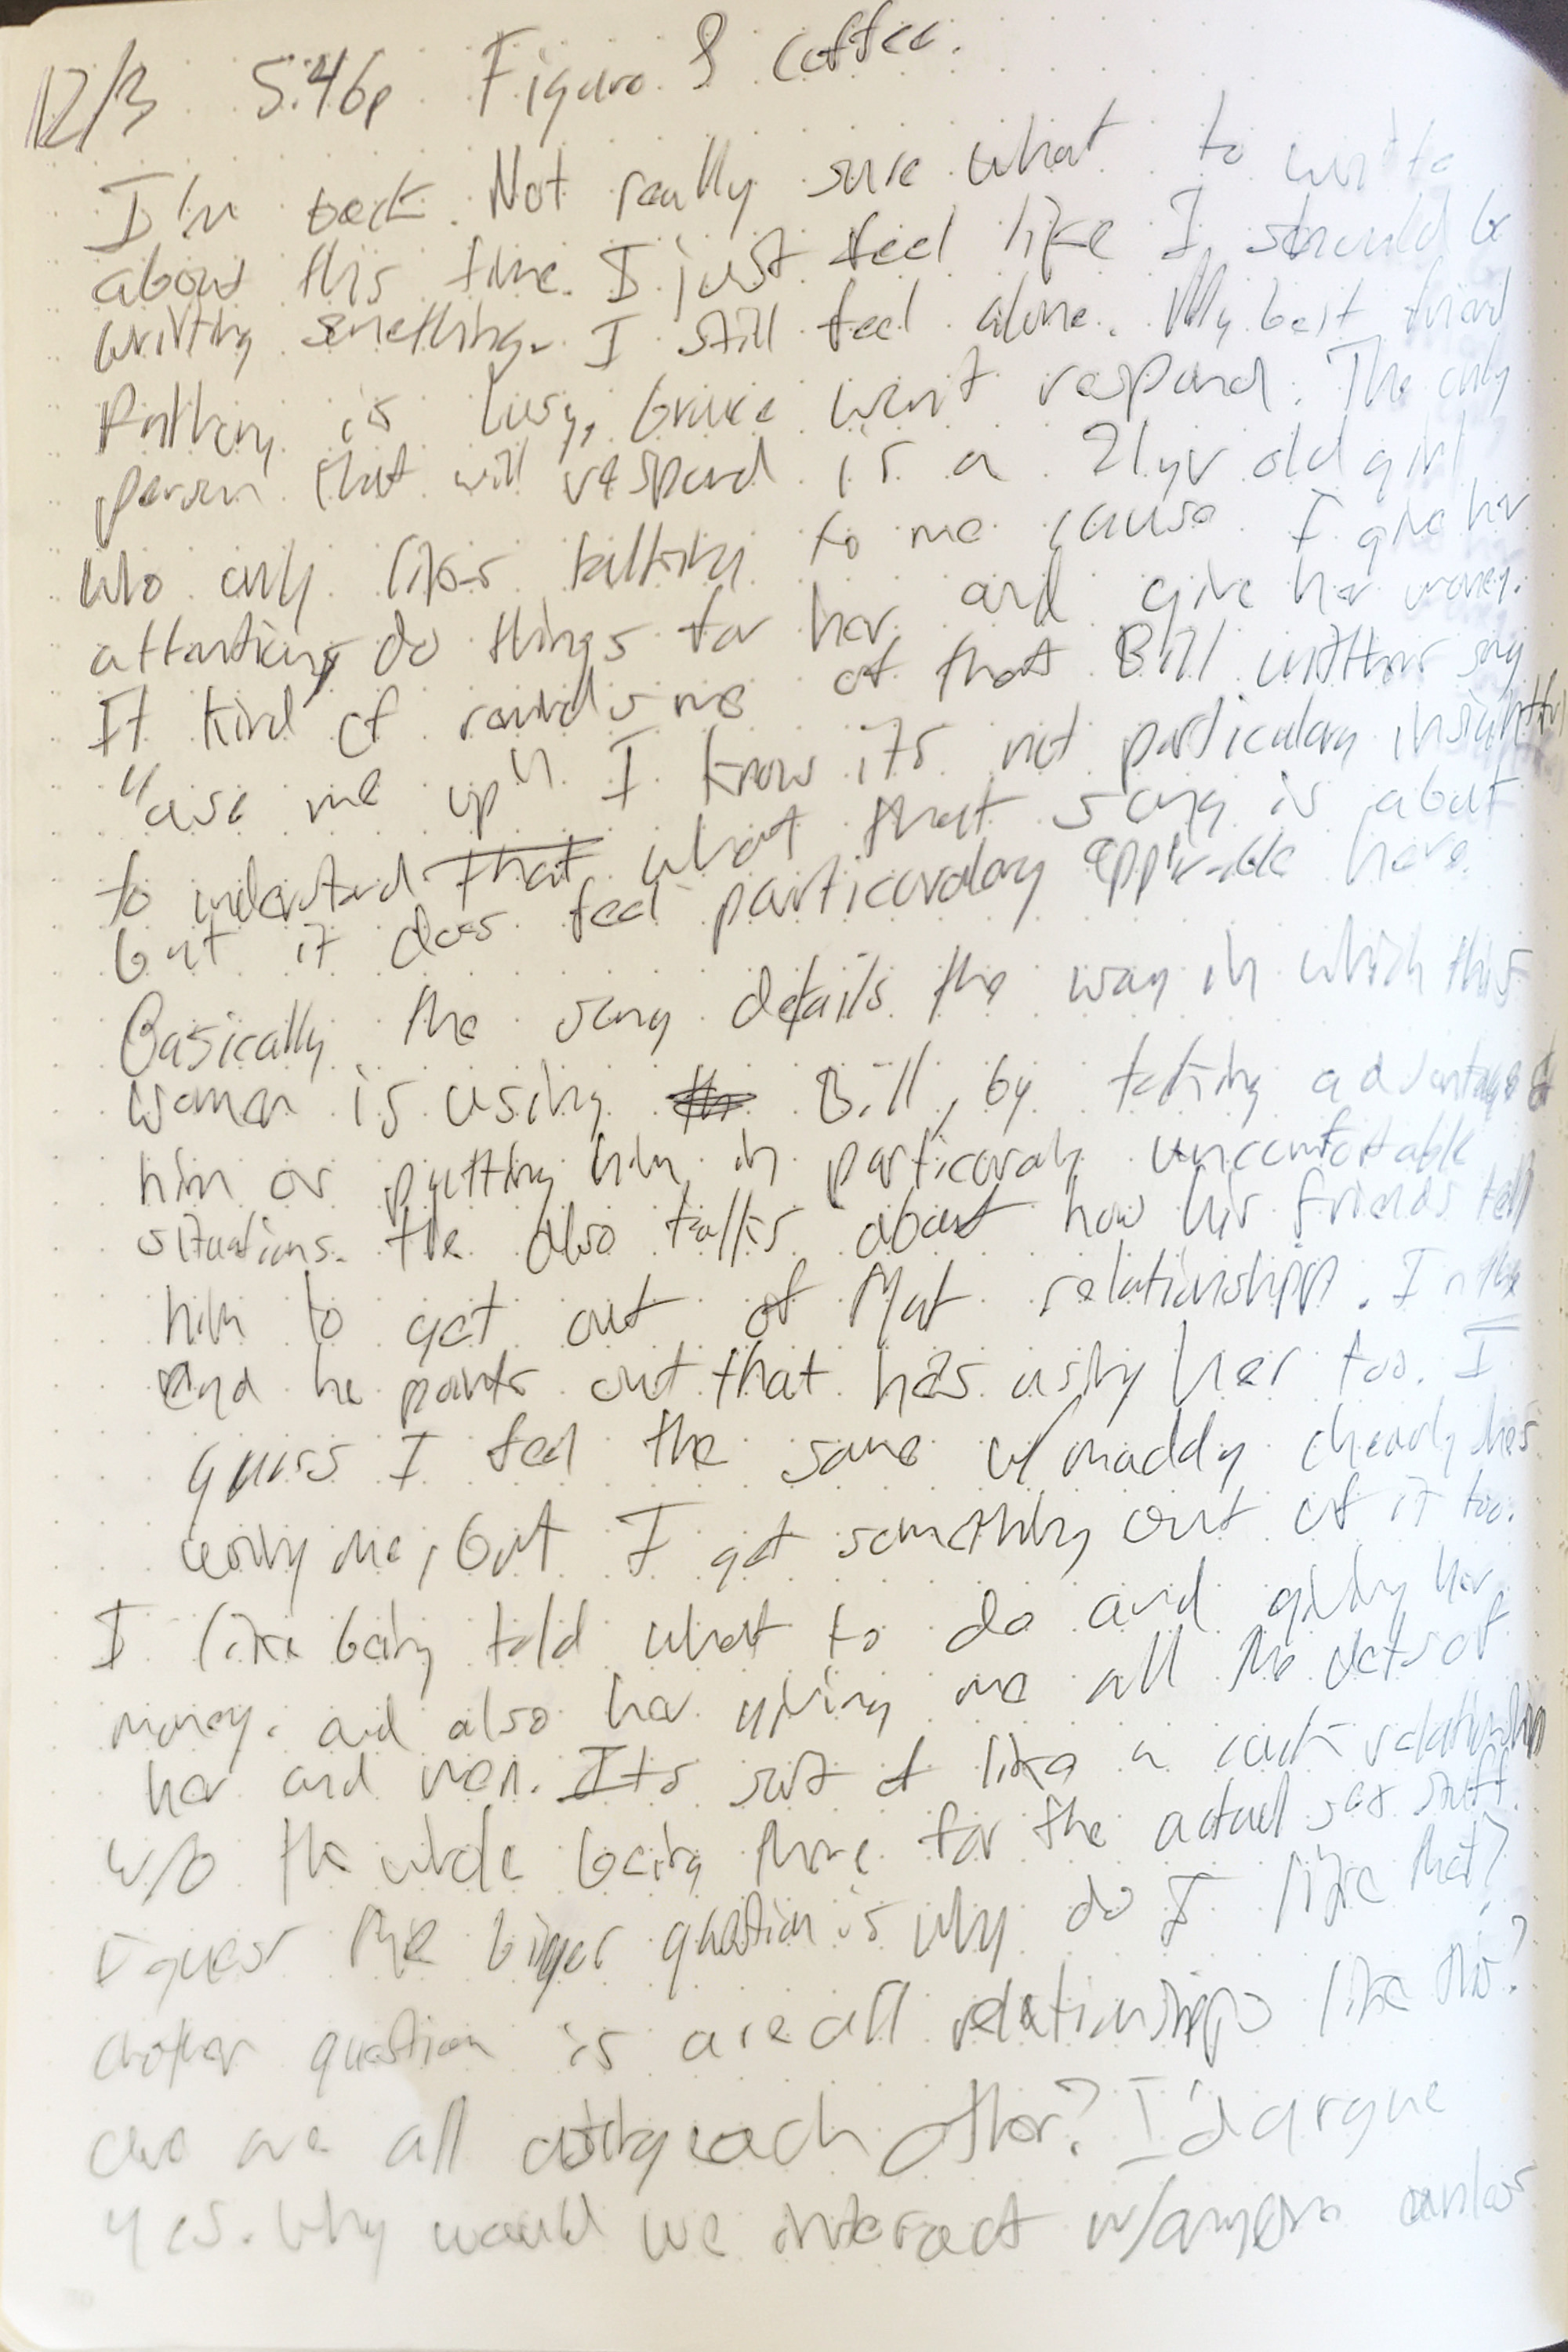 12/3 5:46p Figaro & coffee.
I'm back. Not really sure what to write
about this time. I just feel like I should be
writting something. I still feel alone. My best friend
is busy, won't respond. The only
person that will respond is a 21 yr old girl
who only likes talking to me cause I give her
attention, do things for her and give her money.
It kind of reminds me of that Bill withers song
"use me up". I know its not particulary insightful
to understand that what that song is about
but it does feel particuraley here.
Basically the song details the way in which this
women is using Bill, by taking advantage of
him or putting him in particuraly uncomfortable
situations. He also talks about how his friends tell
him to get out of that relationship. In the
end he points out that he's using her too. I
guess I feel the same w/ maddy clearly shes
using me, but I get something out of it too.
I like being told what to do and giving her
money. and also her giving me all the dets of
her and men. Its sort of like a cuck relationship
w/o the whole being there for the actual sex stuff.
I guess the bigger question is why do I like that?
another question is are all relationships like this?
are we all using each other? I'd argue
yes. Why would we interact w/anyone unless